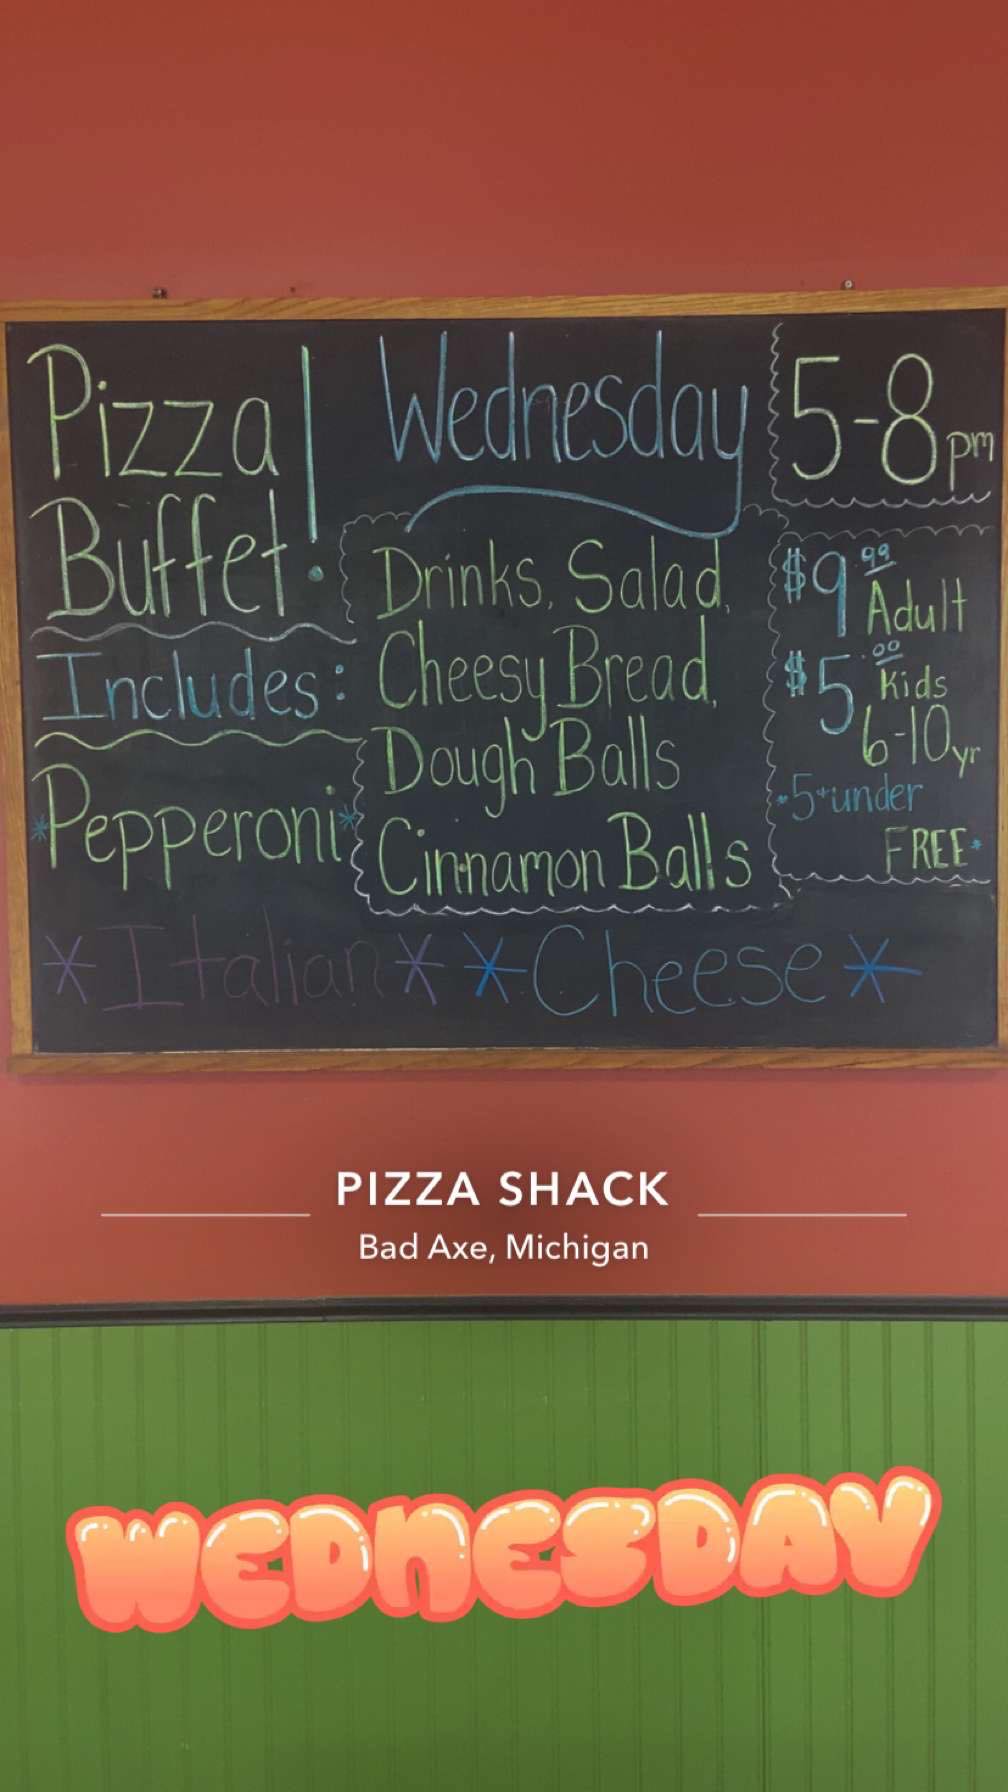 Pizza
Buffet!
Includes:
*Pepperoni*
Wednesday
Drinks, Salad,
Cheesy Bread,
Dough Balls
Cinnamon Balls
5-8pm
$9.99
Adult
$5.00
Kids
6-10yr
*5+under
FREE*
*Italian* *Cheese*
PIZZA SHACK
Bad Axe, Michigan
WEDNESDAY